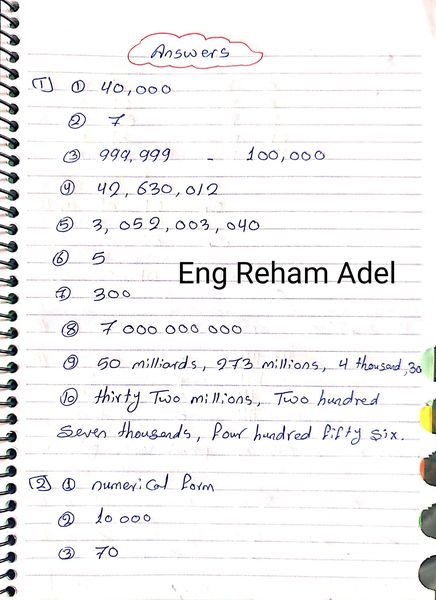 Answers
[1] ① 40,000
② 7
③ 999,999 - 100,000
④ 42,630,012
⑤ 3,052,003,040
⑥ 5
Eng Reham Adel
⑦ 300
⑧ 7 000 000 000
⑨ 50 milliards, 273 millions, 4 thousand, 30
⑩ thirty Two millions, Two hundred
Seven thousands, four hundred fifty six.
[2] ① numerical form
② 10 000
③ 70